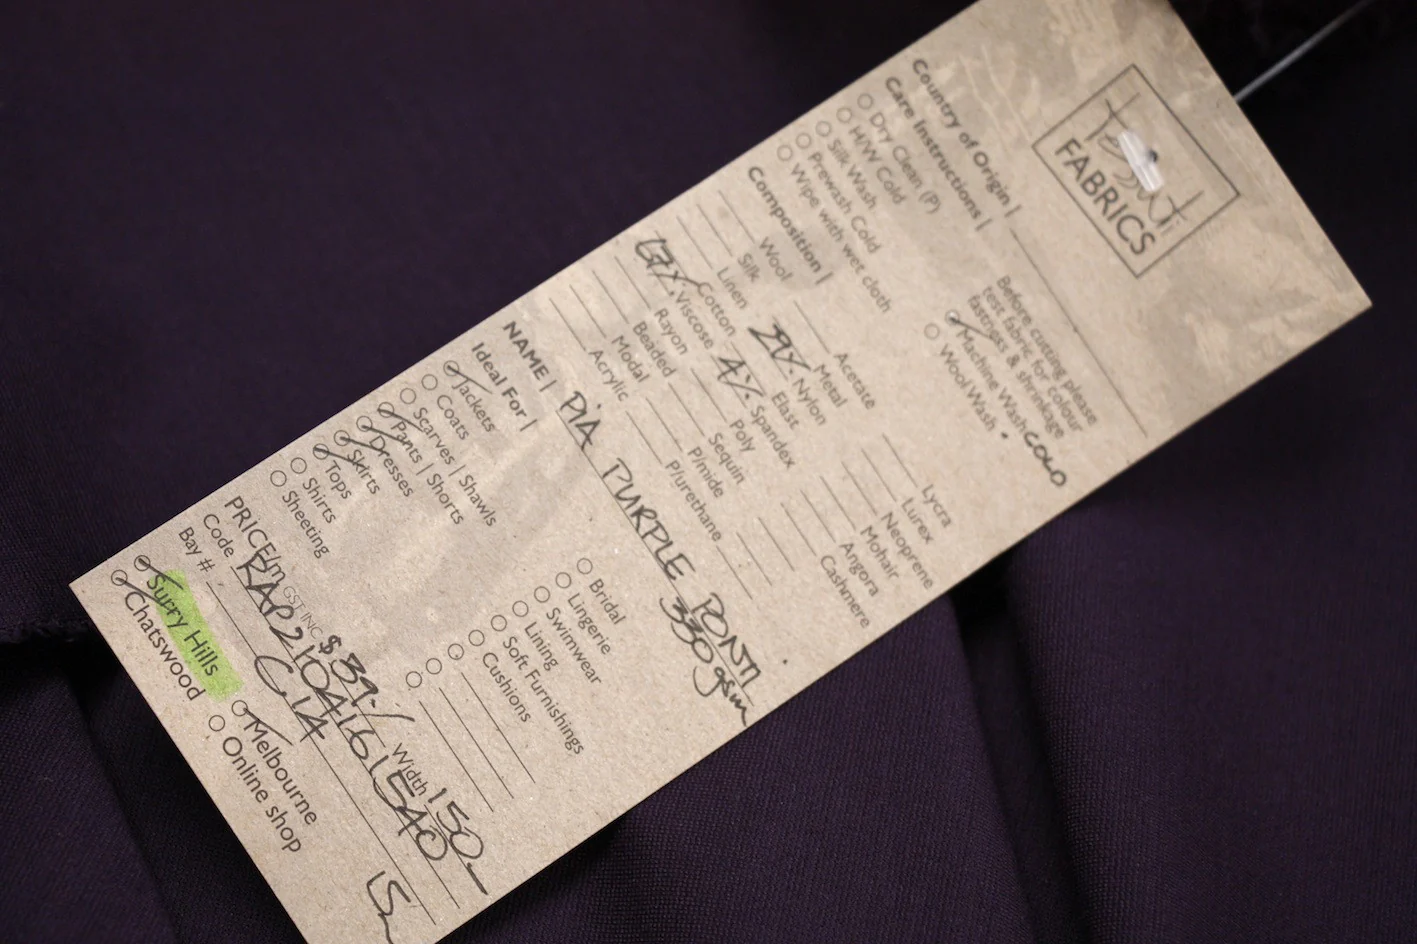 Tessuti
FABRICS
Country of Origin |
Care Instructions |
Dry Clean (P)
H/W Cold
Silk Wash
Prewash Cold
Wipe with wet cloth
Before cutting please
test fabric for colour
fastness & shrinkage
Machine Wash COLD
Wool Wash
Composition |
Wool
Silk
Linen
Cotton
67% Viscose
Rayon
Beaded
Modal
Acrylic
Acetate
Metal
29% Nylon
Elast
4% Spandex
Poly
Sequin
P/mide
P/urethane
Lycra
Lurex
Neoprene
Mohair
Angora
Cashmere
NAME | PIA PURPLE PONTI
330gsm
Ideal For |
Jackets
Coats
Scarves | Shawls
Pants | Shorts
Dresses
Skirts
Tops
Shirts
Sheeting
Bridal
Lingerie
Swimwear
Lining
Soft Furnishings
Cushions
PRICE/m GST INC $39./ Width 150
Code RAP2104161540
Bay # C14
Surry Hills
Chatswood
Melbourne
Online shop